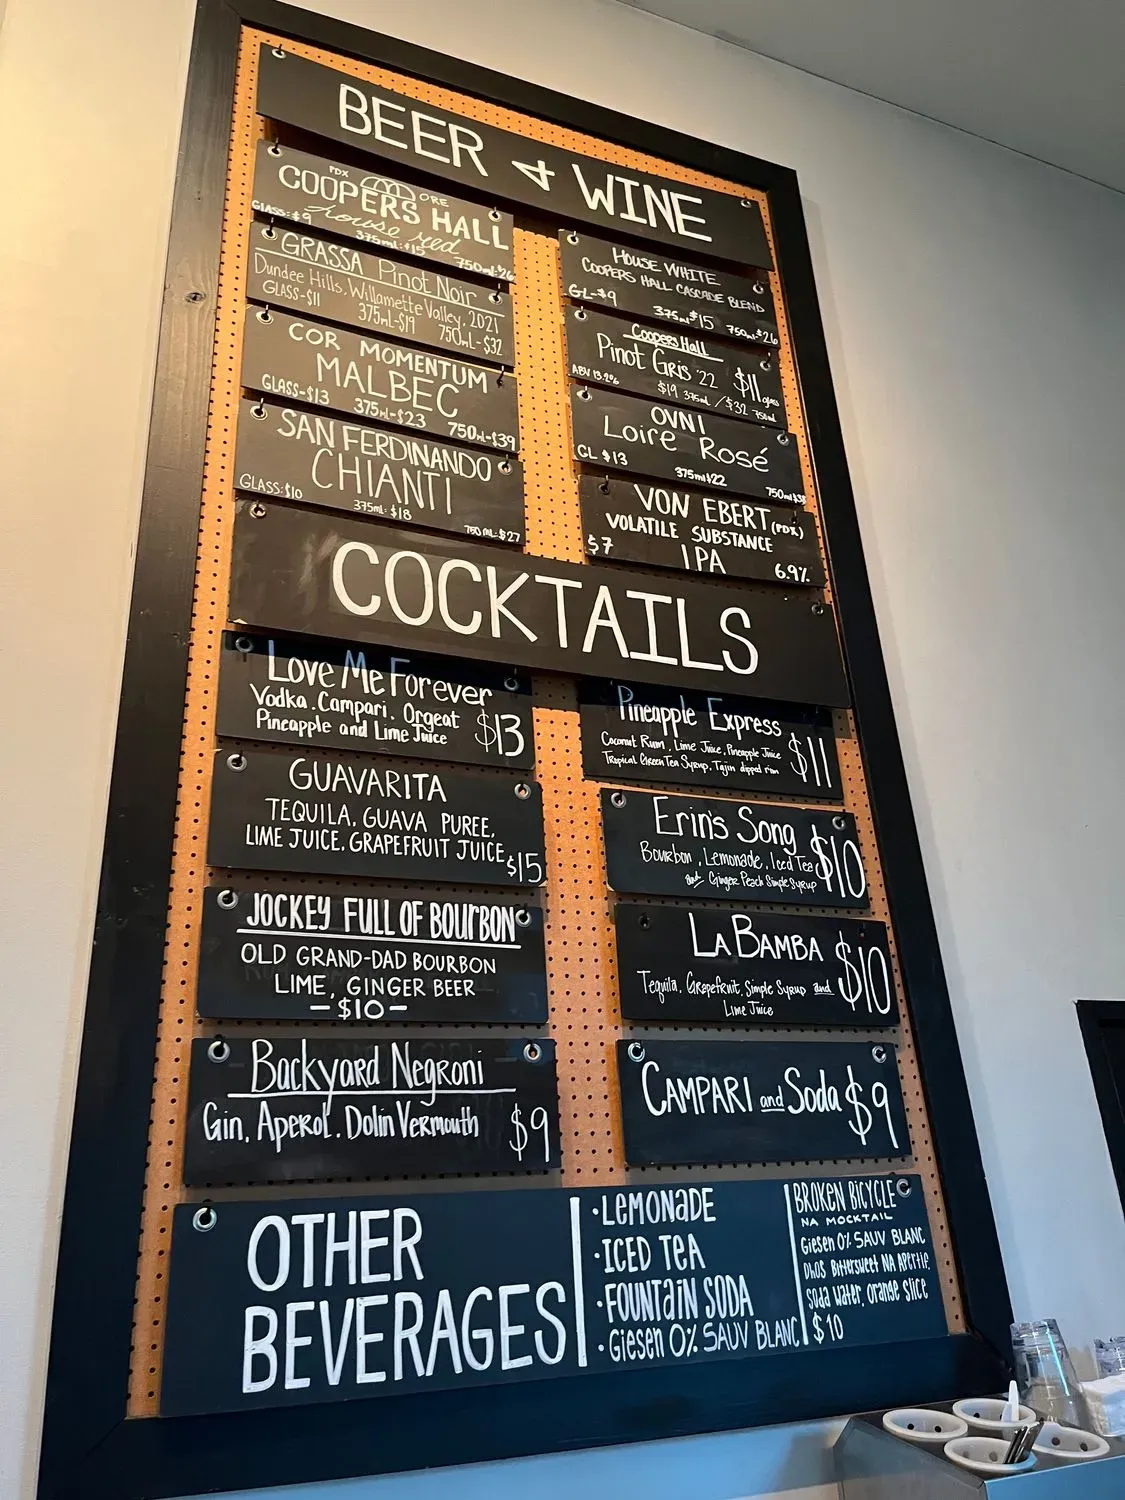 BEER & WINE
PDX ORE
COOPERS HALL
house red
GLASS: $9 375ml: $15 750ml: $26
GRASSA Pinot Noir
Dundee Hills, Willamette Valley, 2021
GLASS-$11 375mL-$19 750mL-$32
COR MOMENTUM
MALBEC
GLASS-$13 375mL-$23 750mL-$39
SAN FERDINANDO
CHIANTI
GLASS: $10 375ml: $18 750ML-$27
HOUSE WHITE
COOPERS HALL CASCADE BLEND
GL-$9 375ml $15 750ml-$26
Coopers Hall
Pinot Gris '22 $11 glass
ABV 13.2% $19 375ml / $32 750ml
OVNI
Loire Rosé
GL $13 375ml $22 750ml $38
VON EBERT (PDX)
VOLATILE SUBSTANCE
$7 IPA 6.9%
COCKTAILS
Love Me Forever
Vodka, Campari, Orgeat
Pineapple and Lime Juice $13
GUAVARITA
TEQUILA, GUAVA PUREE,
LIME JUICE, GRAPEFRUIT JUICE $15
JOCKEY FULL OF BOURBON
OLD GRAND-DAD BOURBON
LIME, GINGER BEER
-$10-
Backyard Negroni
Gin, Aperol, Dolin Vermouth $9
Pineapple Express
Coconut Rum, Lime Juice, Pineapple Juice
Tropical Green Tea Syrup, Tajin dipped rim $11
Erin's Song $10
Bourbon, Lemonade, Iced Tea
and Ginger Peach Simple Syrup
LA BAMBA $10
Tequila, Grapefruit, Simple Syrup and
Lime Juice
CAMPARI and Soda $9
OTHER
BEVERAGES
·LEMONADE
·ICED TEA
·FOUNTAIN SODA
·Giesen 0% SAUV BLANC
BROKEN BICYCLE
NA MOCKTAIL
Giesen 0% SAUV BLANC
DHOS Bittersweet NA Apertif,
soda water, orange slice
$10